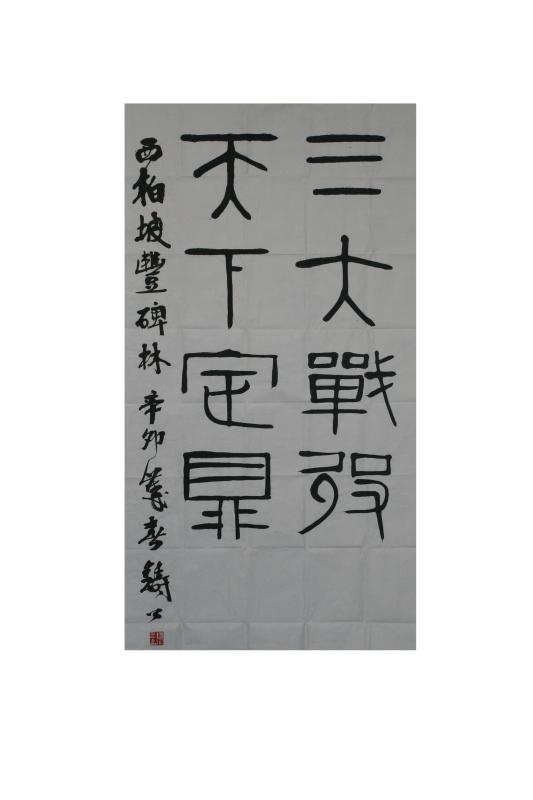 三大戰役
天下定鼎
西柏坡豐碑林 辛卯 春 鑄公